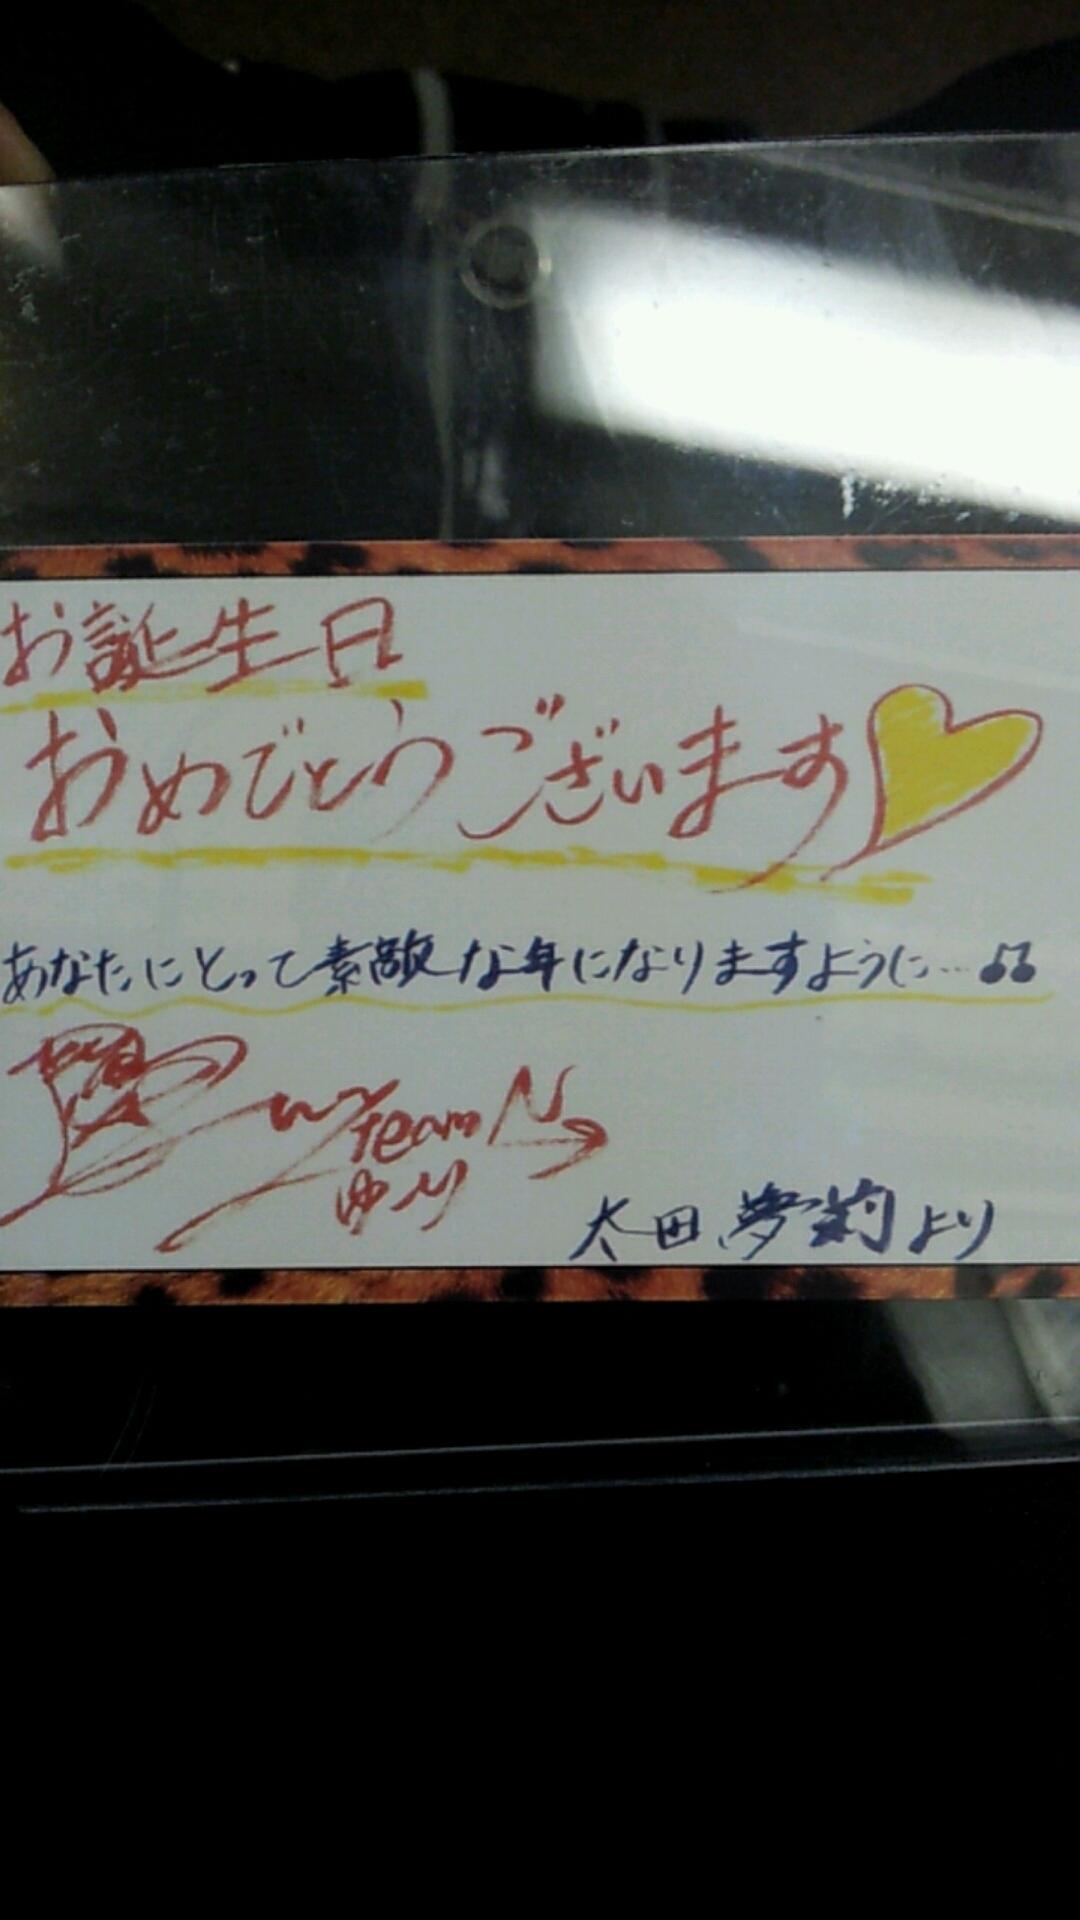 お誕生日
おめでとうございます
あなたにとって素敵な年になりますように…♫
Team N
ゆーり
太田夢莉より